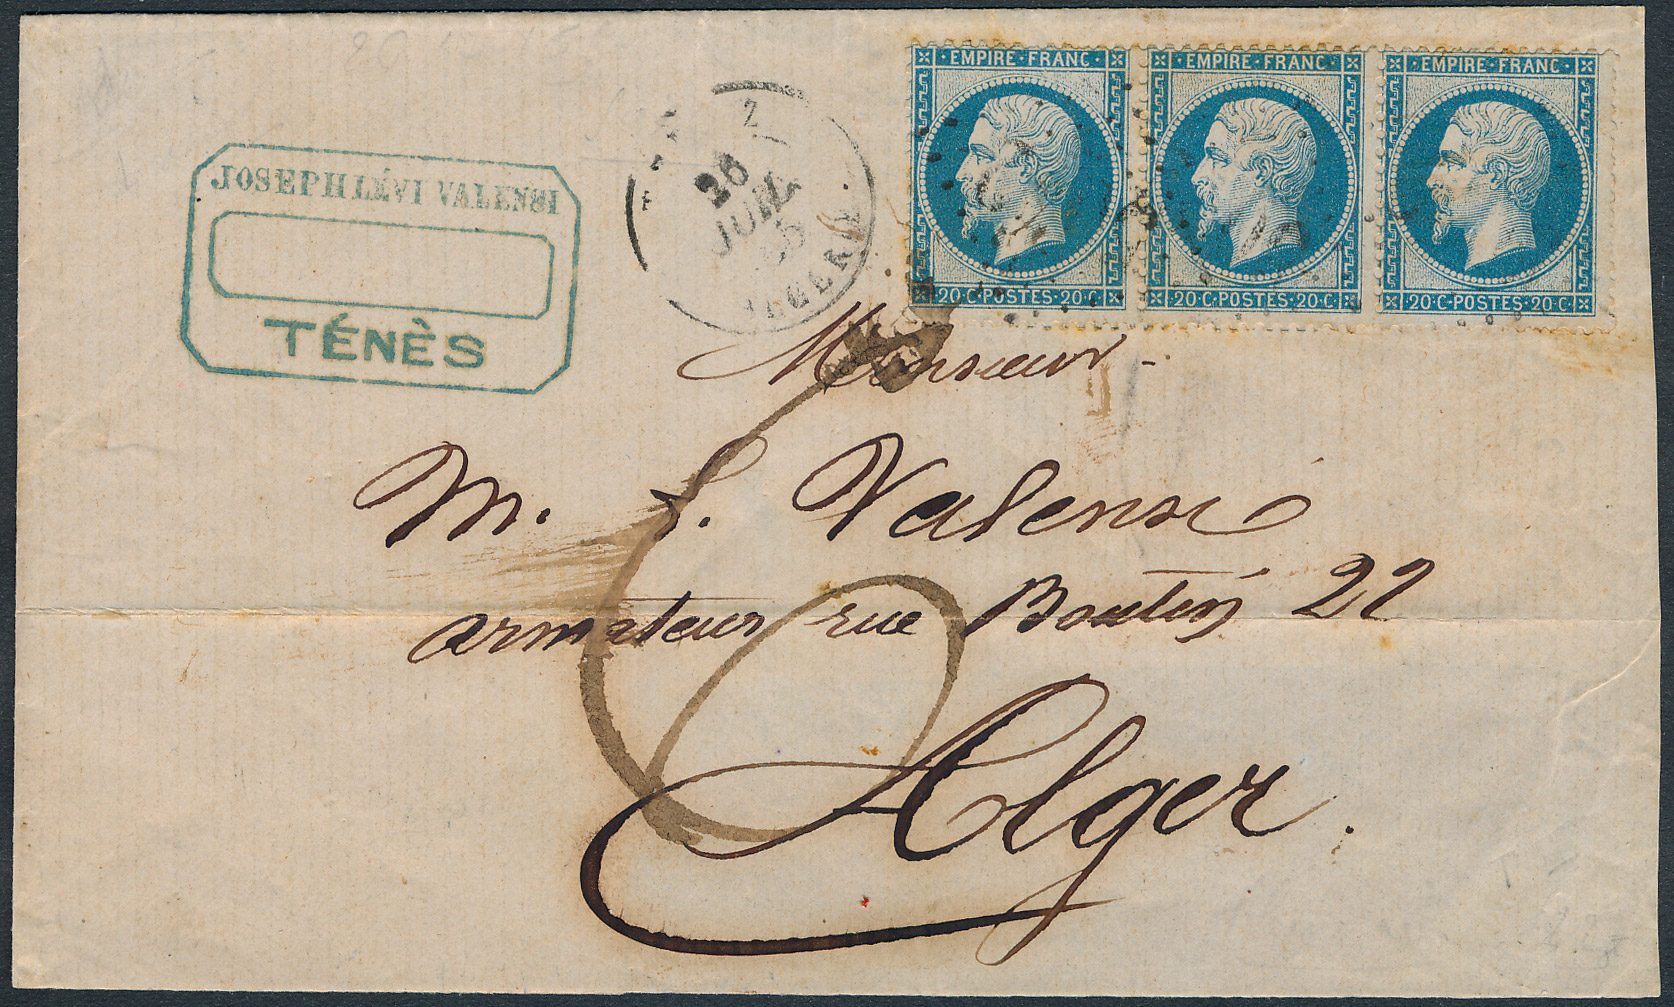 EMPIRE · FRANC · EMPIRE · FRANC · EMPIRE · FRANC ·
20·C·POSTES·20·C 20·C·POSTES·20·C 20·C·POSTES·20·C
JOSEPH LÉVI VALENSI
TÉNÈS
2
26
JUIL
ALGERIE
Monsieur
M. S. Valensi
armateur rue Boutin 22
Alger.